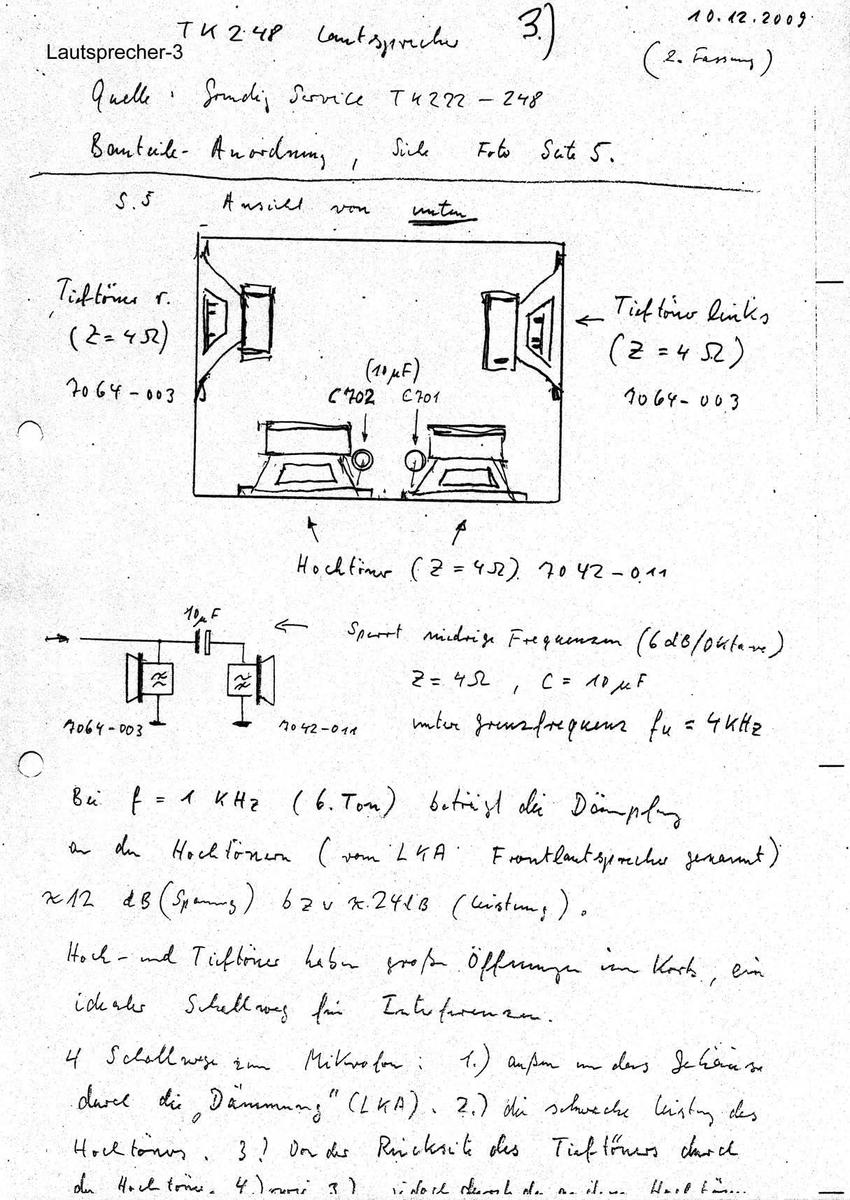 TK 248 Lautsprecher 3.)
10.12.2009
Lautsprecher-3
(2. Fassung)
Quelle: Grundig Service TK222-248
Bauteile-Anordnung, Siehe Foto Seite 5.
S.5 Ansicht von unten
Tieftöner r.
(Z=4Ω)
7064-003
(10µF)
C702 C701
← Tieftöner links
(Z=4Ω)
7064-003
Hochtöner (Z=4Ω) 7042-011
10µF
7064-003
7042-011
← Sperrt niedrige Frequenzen (6dB/Oktave)
Z=4Ω, C=10µF
untere Grenzfrequenz fu = 4KHz
Bei f = 1 KHz (6. Ton) beträgt die Dämpfung
an den Hochtönern (vom LKA Frontlautsprecher genannt)
≈12 dB (Spannung) bzw ≈24dB (Leistung).
Hoch- und Tieftöner haben große Öffnungen im Korb, ein
idealer Schallweg für Interferenzen.
4 Schallwege zum Mikrofon: 1.) außen um das Gehäuse
durch die „Dämmung" (LKA). 2.) die schwache Leistung des
Hochtöners. 3.) Von der Rückseite des Tieftöners durch
den Hochtöner. 4.) wie 3.) jedoch durch den Hochtöner